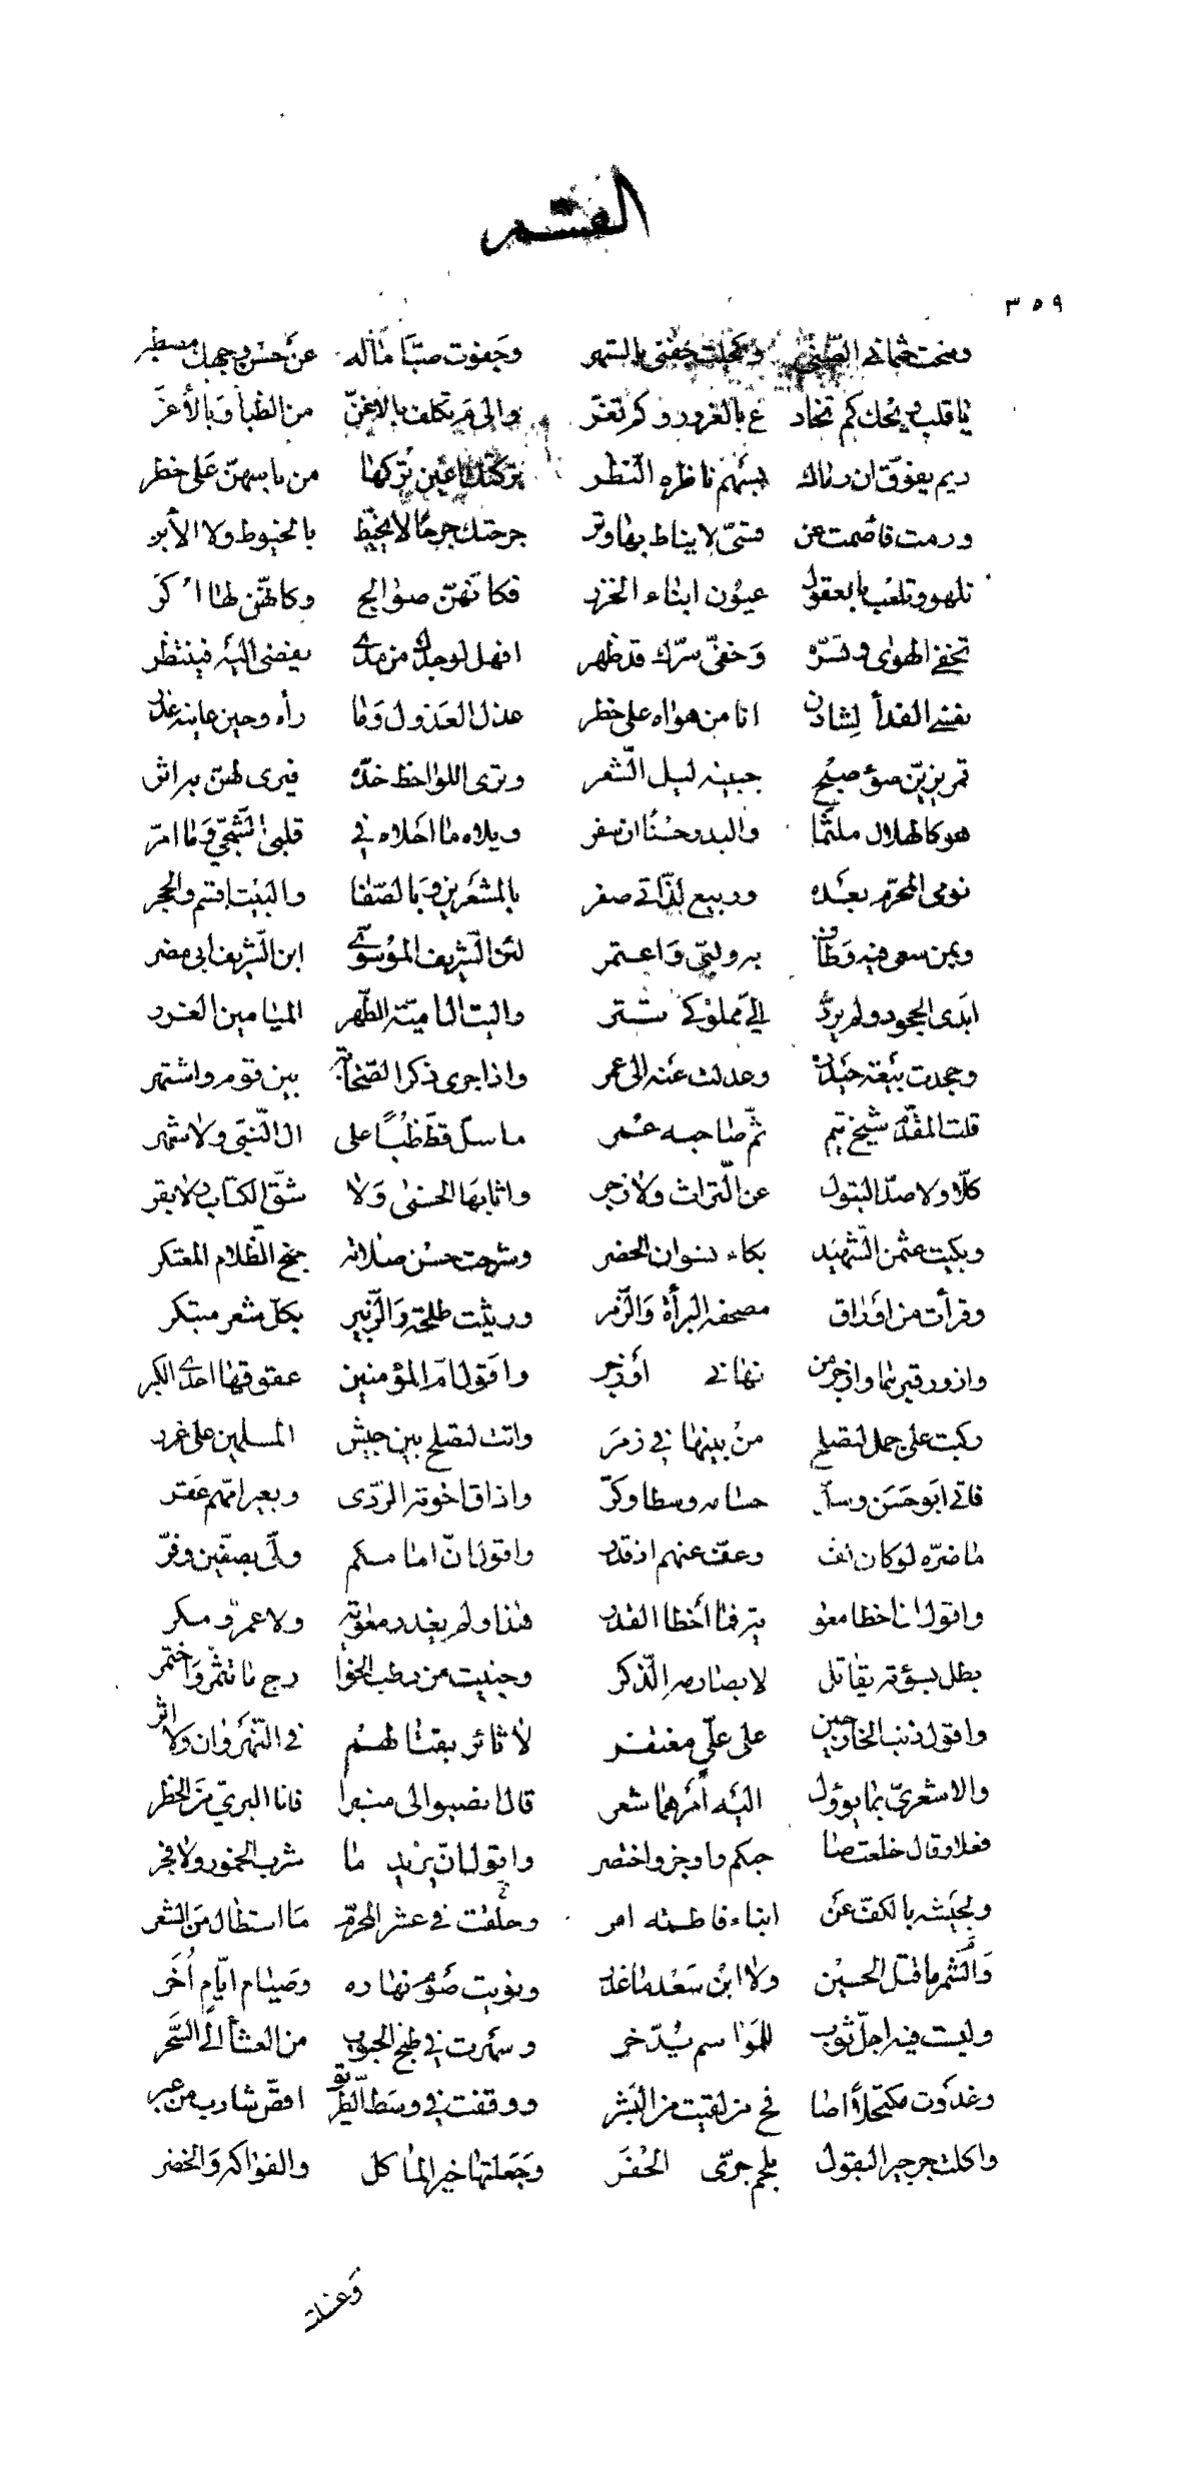 القسم
٣٥٩
ومنحت جثماني الضنى وكحلت جفني بالسهر وجفوت صبّا ماله عن حسن وجهك مصطبر
يا قلب ويحك كم تخاد ع بالغرور وكم تغتر والى م تكلف بالاغنّ من الظبا وبالأغر
ريم يفوّق ان رماك بسهم ناظره النّظر تركتك اعين تركها من باسهنّ على خطر
ورمت فأصمت عن قسيّ لا يناط بها وتر جرحتك جرحًا لا يخيّط بالخيوط ولا الأبر
تلهو وتلعب بالعقول عيون ابناء الخزر فكانّهنّ صوالج وكانّهنّ لها اكر
تخفي الهوى وتسرّه وخفيّ سرّك قد ظهر افهل لوجدك من مدى يفضي اليه فينتظر
نفسي الفدأ لشادن انا من هواه على خطر عذل العذول وما رأه وحين عاينه عذر
قمر يزيّن ضوء صبح جبينه ليل الشّعر وترى اللواحظ خدّه فيرى لهنّ به اثر
هو كالهلال ملثّما والبدر حسنًا ان سفر ويلاه ما احلاه في قلبي الشّجيّ وما امرّ
نومي المحرّم بعده وربيع لذّاتي صفر بالمشعرين وبالصّفا والبيت اقسم والحجر
وبمن سعى فيه وطاف به ولبّى واعتمر لئن الشّريف الموسوي ابن الشّريف ابي مضر
ابدى الجحود ولم يردّ اليّ مملوكي تتر واليت ال اميّة الطّهر الميامين الغرر
وجحدت بيعة حيدر وعدلت عنه الى عمر واذا جرى ذكر الصّحابة بين قوم واشتهر
قلت المقدّم شيخ تيم ثمّ صاحبه عمر ما سلّ قطّ ظبًا على ال النّبيّ ولا شهر
كلّا ولا صدّ البتول عن التّراث ولا زجر واثابها الحسنى ولا شقّ الكتاب ولا بقر
وبكيت عثمن الشّهيد بكاء نسوان الحضر وشرحت حسن صلاته جنح الظّلام المعتكر
وقرأت من اوراق مصحفه البرأة والزّمر ورثيت طلحة والزّبير بكلّ شعر مبتكر
وازور قبرهما وازجر من نهاني أو زجر واقول امّ المؤمنين عقوقها احدى الكبر
ركبت على جمل لتصلح من بينها في زمر واتت لتصلح بين جيش المسلمين على غرر
فاتى ابو حسن وسلّ حسامه وسطا وكرّ واذاق اخوته الرّدى وبعير امّهم عقر
ما ضرّه لو كان كفّ وعفّ عنهم اذ قدر واقول انّ امامكم ولّى بصفّين وفرّ
واقول ان اخطا معو ية فما أخطا القدر هذا ولم يغدر معوية ولا عمرو مكر
بطل بسوءته يقاتل لا بصارمه الذّكر وجنيت من رطب الخوا رج ما تثمّر واختمر
واقول ذنب الخارجين على عليّ مغتفر لا ثائر بقتالهم في النّهروان ولا اثر
والاشعريّ بما يؤول اليه أمرهما شعر قال انصبوا لي منبرا فانا البري من الخطر
فعلا وقال خلعت صا حبكم واوجز واختصر واقول انّ يزيد ما شرب الخمور ولا فجر
ولجيشه بالكفّ عن ابناء فاطمة امر وحلقت في عشر المحرّم ما استطال من الشعر
والشّمر ما قتل الحسين ولا ابن سعد ما غدر ونويت صوم نهاره وصيام ايّام أخر
ولبست فيه اجلّ ثوب للمواسم يدّخر وسهرت في طبخ الحبوب من العشأ الى السّحر
وغدوت مكتحلاً اصا فح من لقيت من البشر ووقفت في وسط الطّريق اقصّ شارب من عبر
واكلت جرجير البقول بلحم جرّي الحفر وجعلتها خير المأكل والفواكه والخضر
وغسلت